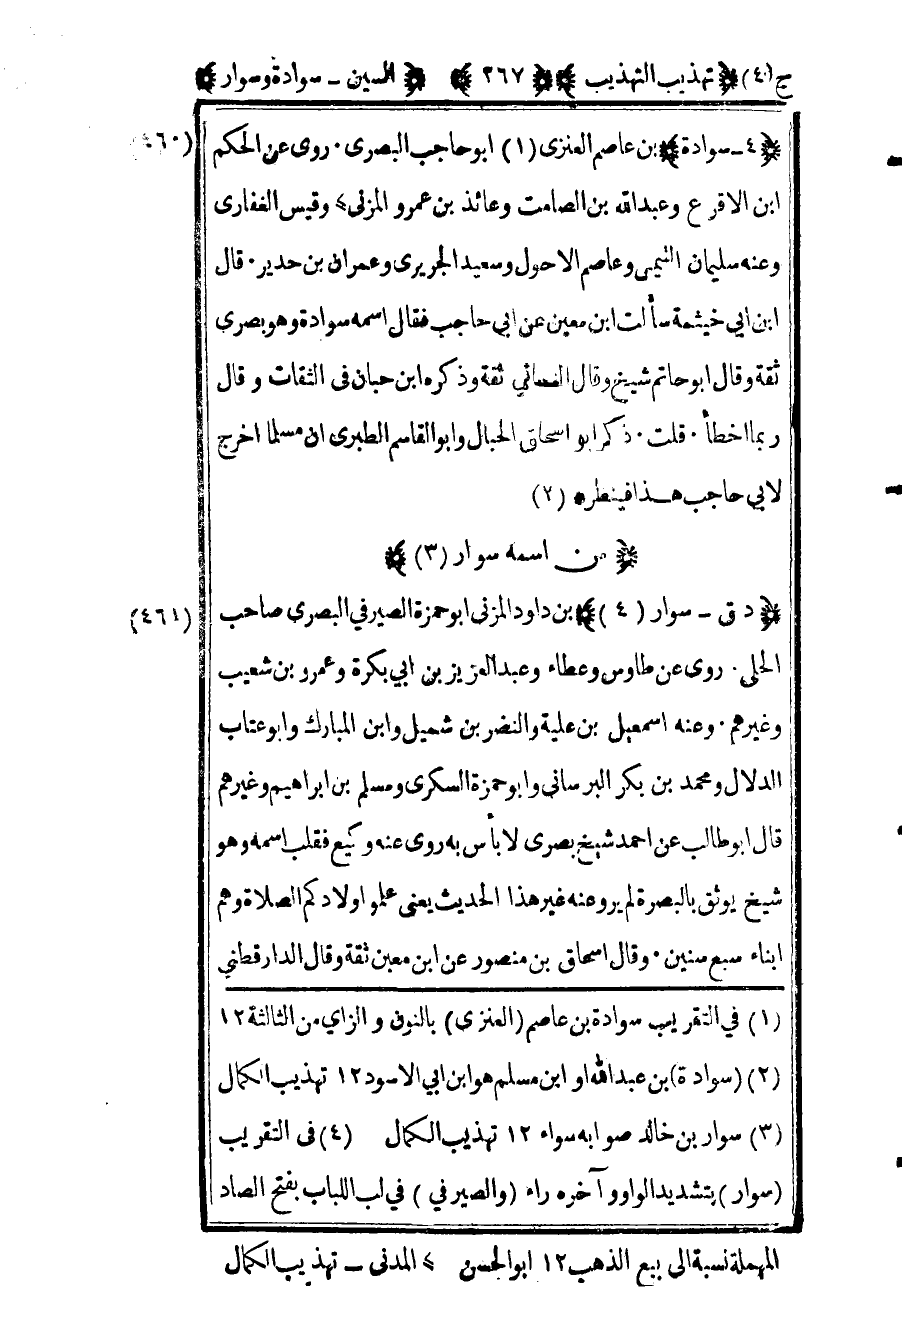 ج (٤) ﴿تهذيب التهذيب﴾ ﴿٢٦٧﴾ ﴿السين ـ سوادة وسوار﴾
﴿٤ ـ سوادة﴾ بن عاصم العنزى (١) ابو حاجب البصرى ٠ روى عن الحكم (٤٦٠)
ابن الاقرع وعبدالله بن الصامت وعائذ بن عمرو المزنى> وقيس الغفارى
وعنه سليمان التيمى وعاصم الاحول وسعيد الجريرى وعمران بن حدير ٠ قال
ابن ابي خيثمة سألت ابن معين عن ابي حاجب فقال اسمه سوادة وهو بصرى
ثقة وقال ابو حاتم شيخ وقال النسائي ثقة وذكره ابن حبان فى الثقات وقال
ربما اخطأ ٠ قلت ٠ ذكر ابو اسحاق الحبال وابو القاسم الطبرى ان مسلما اخرج
لابي حاجب هــذا فينظره (٢)
﴿من اسمه سوار (٣)﴾
﴿د ق ـ سوار (٤)﴾ بن داود المزنى ابو حمزة الصيرفي البصرى صاحب (٤٦١)
الحلى ٠ روى عن طاوس وعطاء وعبد العزيز بن ابي بكرة وعمرو بن شعيب
وغيرهم ٠ وعنه اسمعيل بن علية والنضر بن شميل وابن المبارك وابو عتاب
الدلال ومحمد بن بكر البرسانى وابو حمزة السكرى ومسلم بن ابراهيم وغيرهم
قال ابو طالب عن احمد شيخ بصرى لا بأس به روى عنه وكيع فقلب اسمه وهو
شيخ يوثق بالبصرة لم يرو عنه غير هذا الحديث يعنى علموا اولادكم الصلاة وهم
ابناء سبع سنين ٠ وقال اسحاق بن منصور عن ابن معين ثقة وقال الدارقطني
(١) في التقريب سوادة بن عاصم (العنزى) بالنون والزاي من الثالثة ١٢
(٢) (سوادة) بن عبدالله او ابن مسلم هو ابن ابي الاسود ١٢ تهذيب الكمال
(٣) سوار بن خالد صوابه سواء ١٢ تهذيب الكمال (٤) فى التقريب
(سوار) بتشديد الواو وآخره راء (والصيرفي) في لب اللباب بفتح الصاد
المهملة نسبة الى بيع الذهب ١٢ ابو الحسن > المدنى ـ تهذيب الكمال